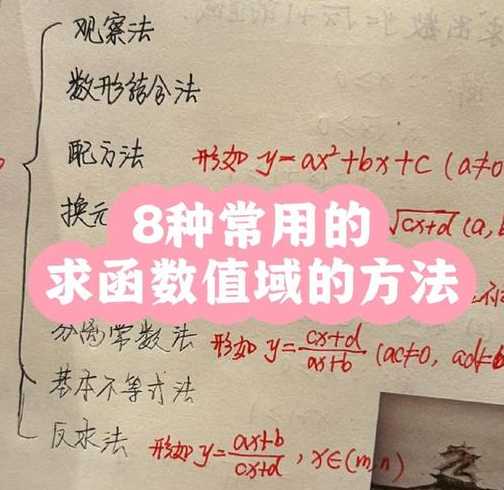 观察法
数形结合法
配方法 形如 y=ax²+bx+c (a≠0
换元
√cx+d (a,b
8种常用的
求函数值域的方法
分离常数法 形如 y=\frac{cx+d}{ax+b} (ac≠0, ad≠b
基本不等式法
反求法 形如 y=\frac{ax+b}{cx+d}, x∈(m,n)